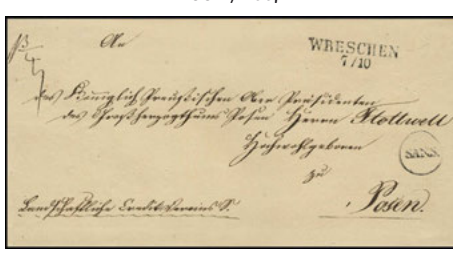 An
WRESCHEN
7/10
des Königlich Preußischen Ober Präsidenten
des Großherzogthums Posen Herrn Flottwell
Hochwohlgeboren
zu
Posen.
Landschaftliche Credit Vereins S.